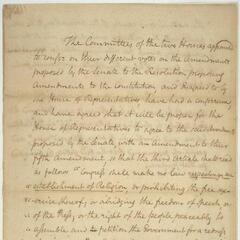 The Committees of the two Houses appointed
to confer on their different votes on the Amendments
proposed by the Senate to the Resolution proposing
Amendments to the Constitution, and disagreed to by
the House of Representatives, have had a conference,
and have agreed that it will be proper for the
House of Representatives to agree to the said Amendments
proposed by the Senate, with an Amendment to their
fifth Amendment, so that the third Article shall read
as follows "Congress shall make no law respecting an
establishment of Religion, or prohibiting the free ex-
ercise thereof; or abridging the freedom of speech, or
of the Press; or the right of the people peaceably to
assemble and petition the Government for a redress